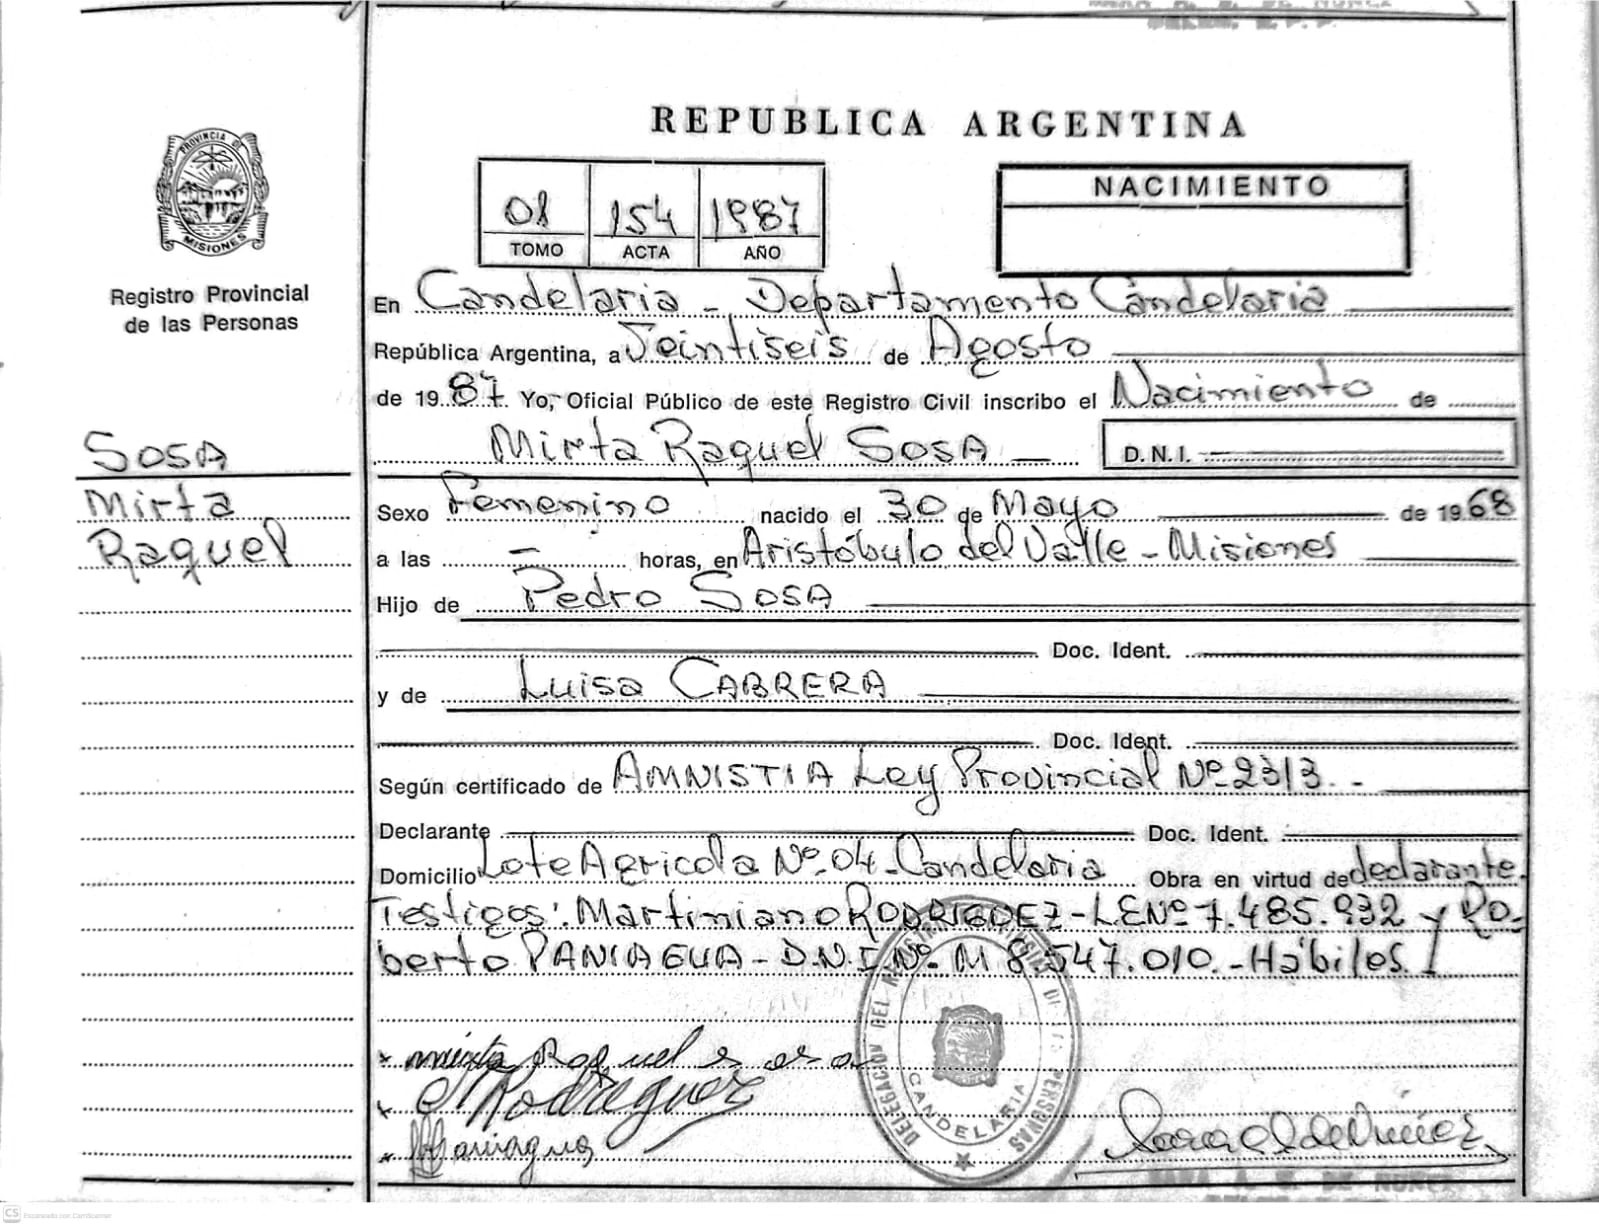 REPUBLICA ARGENTINA
PROVINCIA DE
MISIONES
Registro Provincial
de las Personas
01 154 1987
TOMO ACTA AÑO
NACIMIENTO
En Candelaria - Departamento Candelaria
República Argentina, a Veintiseis de Agosto
de 1987. Yo, Oficial Público de este Registro Civil inscribo el Nacimiento de
Mirta Raquel SOSA — D.N.I.
SOSA
Mirta
Raquel
Sexo Femenino nacido el 30 de Mayo de 1968
a las — horas, en Aristóbulo del Valle - Misiones
Hijo de Pedro SOSA
Doc. Ident.
y de Luisa CABRERA
Doc. Ident.
Según certificado de AMNISTIA Ley Provincial Nº 2313. -
Declarante Doc. Ident.
Domicilio Lote Agricola Nº 04 - Candelaria Obra en virtud de declarante.
Testigos: Martiniano RODRIGUEZ - L.E Nº 7.485.932 y Ro-
berto PANIAGUA - D.N.I Nº M 8.547.010. - Hábiles
mirta Raquel sosa
Rodriguez
Paniagua
DELEGACION DEL REGISTRO PROVINCIAL DE LAS PERSONAS
CANDELARIA
CS Escaneado con CamScanner